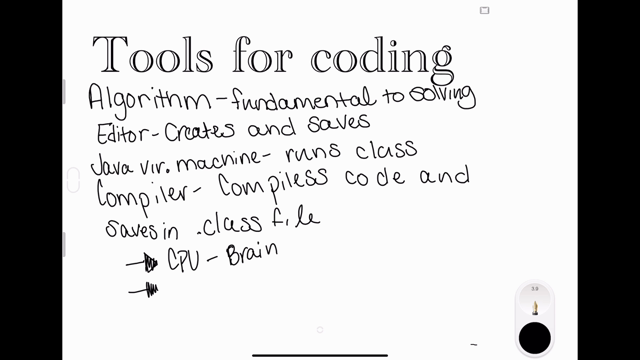 Tools for coding
Algorithm - fundamental to solving
Editor - Creates and saves
Java vir. machine - runs class
Compiler - Compiless code and
saves in .class file
→ CPU - Brain
→